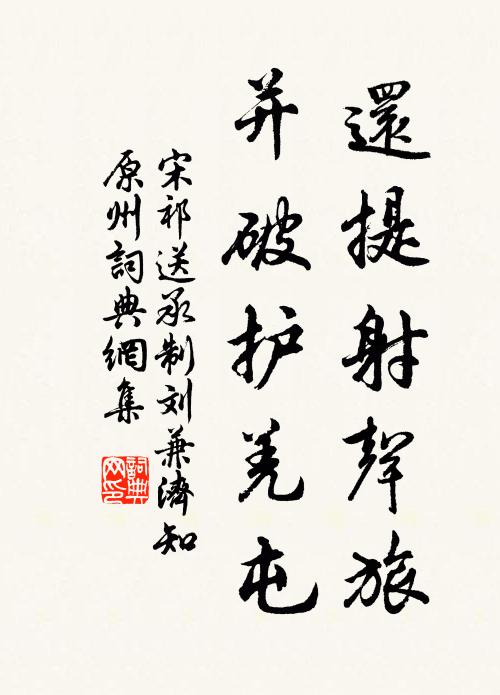 還提射聲旅
并破护羌屯
宋祁送承制刘兼濟知
原州詞典網集
詞典网印